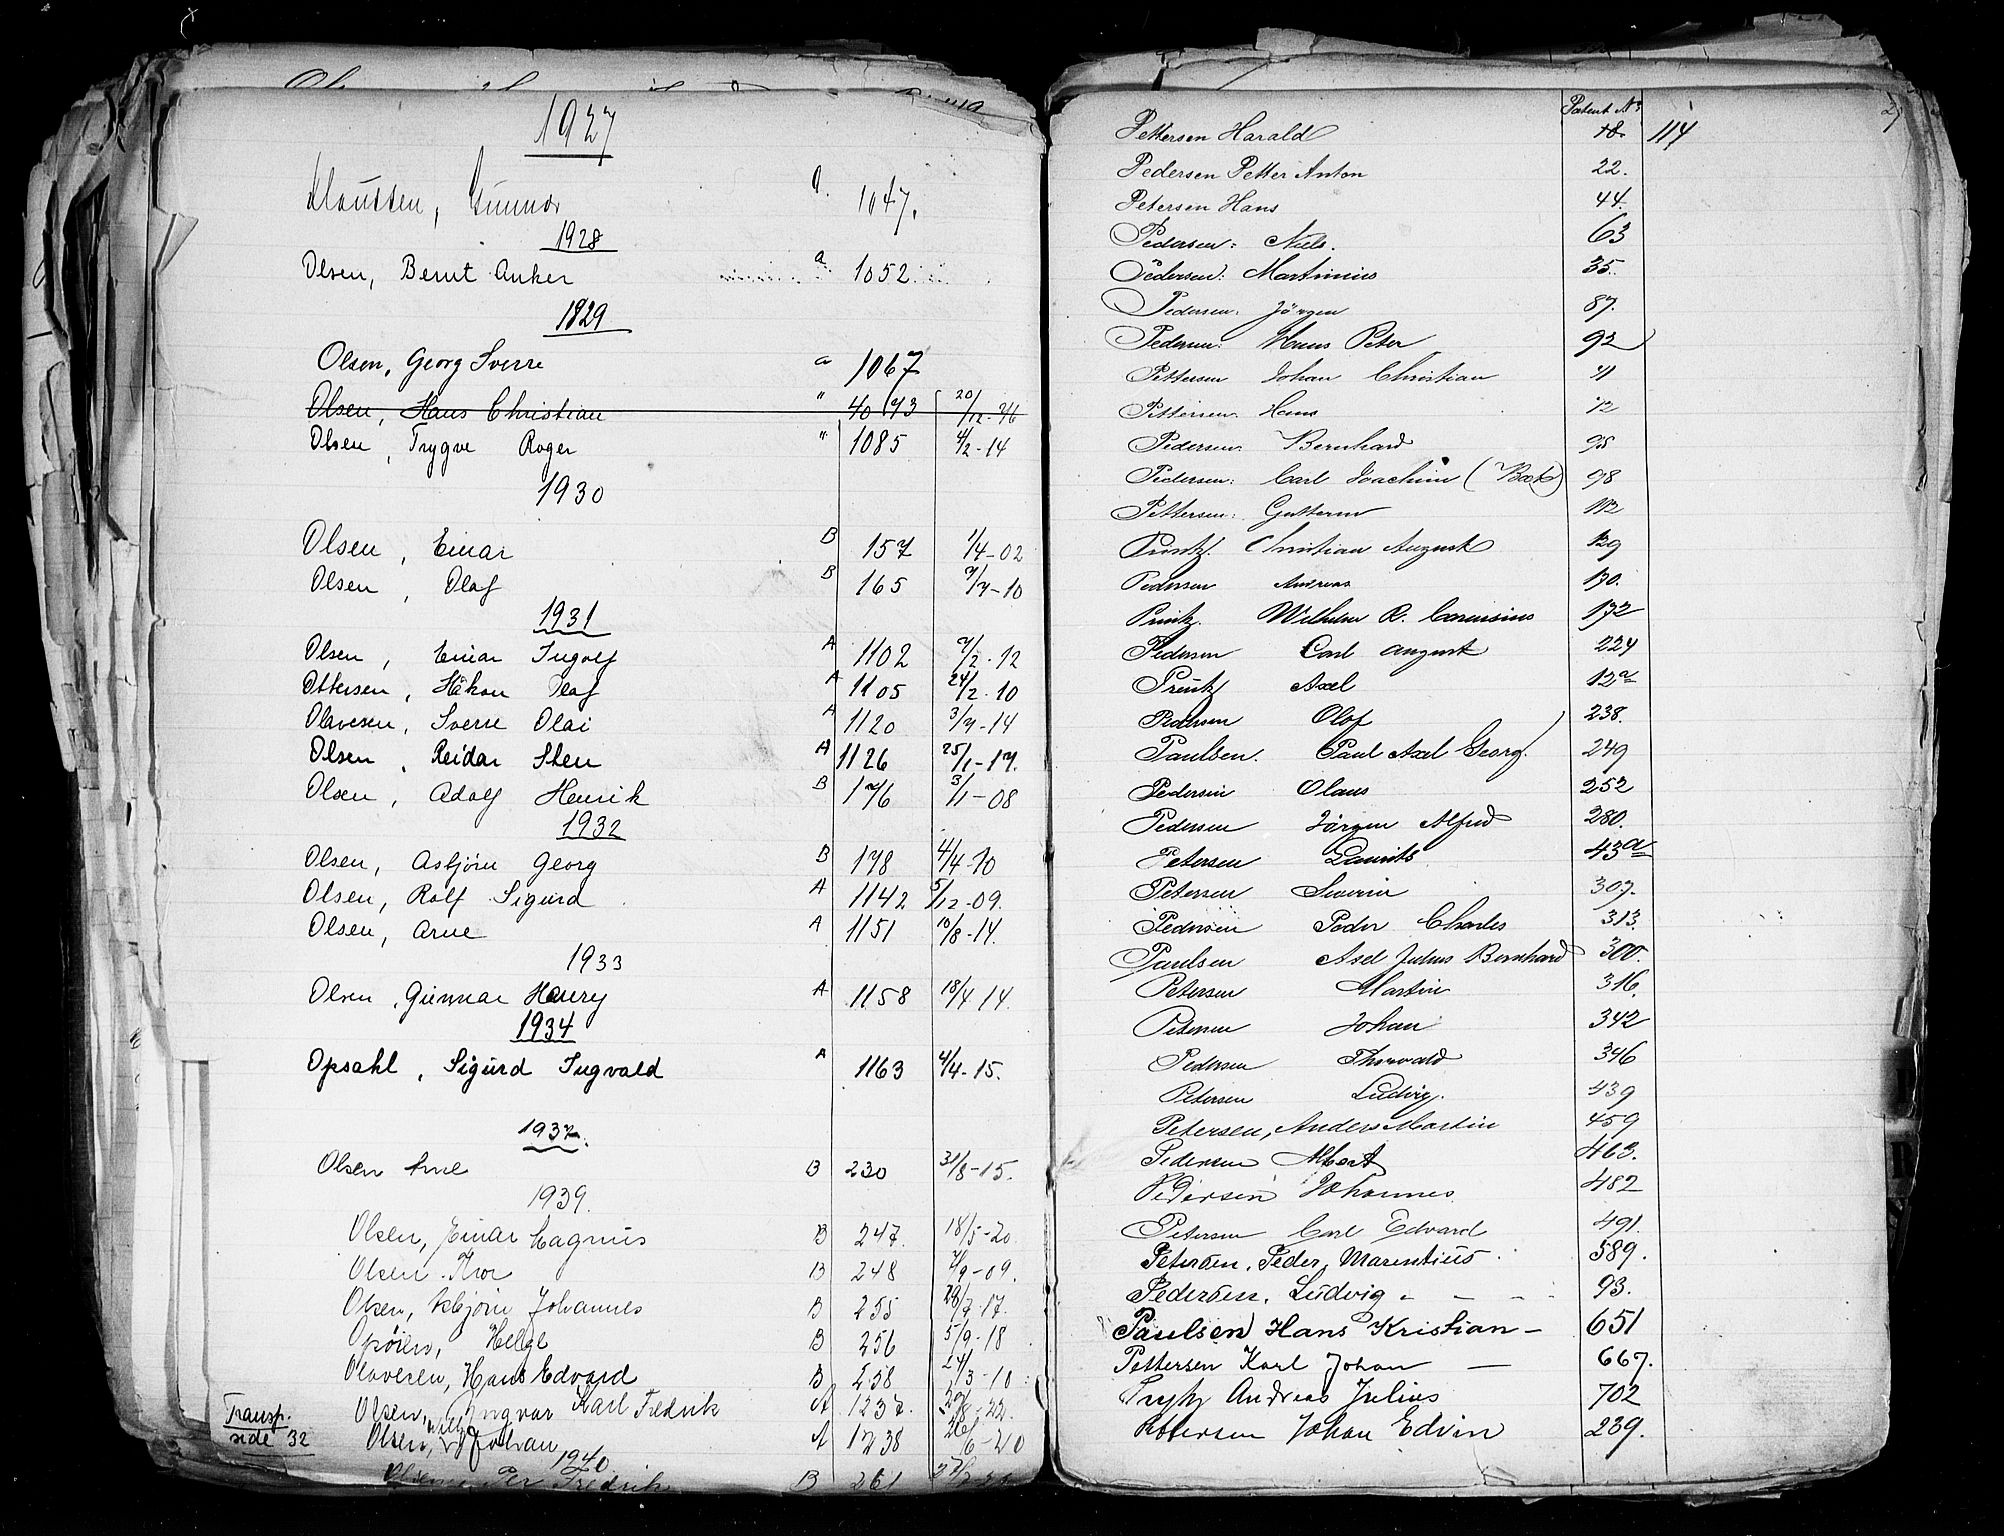 1927
Klaussen, Gunnar a. 1047.
1928
Olsen, Bernt Anker a 1052
1829
Olsen, Georg Sverre a 1067
Olsen, Hans Christian " 4073 20/12-26
Olsen, Trygve Roger " 1085 4/2-14
1930
Olsen, Einar B 157 1/4-02
Olsen, Olaf B 165 7/7-10
1931
Olsen, Einar Ingolf A 1102 7/2-12
Ottersen, Håkon Olaf A 1105 24/2-10
Olavesen, Sverre Olai A 1120 3/7-14
Olsen, Reidar Sten A 1126 25/1-17.
Olsen, Adolf Henrik B 176 3/11-08
1932
Olsen, Asbjörn Georg B 178 4/4-10
Olsen, Rolf Sigurd A 1142 5/12-09.
Olsen, Arne A 1151 10/8-14.
1933
Olsen, Gunnar Henry A 1158 18/4 14.
1934
Opsahl, Sigurd Ingvald A 1163 4/4-15.
1937.
Olsen Arne B 230 31/8-15.
1939.
Olsen, Einar Magnus B 247. 18/5-20
Olsen Thor B 248 7/9-09.
Olsen, Asbjörn Johannes B 255 28/7-17.
Opöien, Helge B 256 5/9-18
Olavesen, Hans Edvard B 258 24/3-10
Olsen, Yngvar Karl Fredrik A 1237.
Transp. side 32
Olsen, Johan A 1238 26/6-20
1940.
Olsen, Per Fredrik B 261
Patent No 27
Pettersen Harald 18. 114
Pedersen Petter Anton 22.
Petersen Hans 44.
Pedersen: Niels. 63
Pedersen: Martinius 35.
Pedersen: Jörgen 87.
Pedersen: Hans Peter 92
Pettersen Johan Christian 71
Pettersen Hans 72
Pedersen Bernhard 95
Pedersen: Carl Joachim (Bock) 98
Pettersen: Guttorm 112
Printz. Christian August 129
Pedersen Andreas 170.
Printz. Wilhelm R. 172
Pedersen Carl August 224
Printz Axel 12a
Pedersen Olof 238.
Paulsen. Paul Axel Georg. 249
Pedersen Olaus 252
Pedersen Jörgen Alfred 280.
Petersen Laurits 43a
Petersen Severin 307.
Pedersen Peder Charles 313.
Paulsen Axel Julius Bernhard 300.
Petersen Martin 316.
Petersen Johan 342
Pedersen Thorvald 346
Petersen Ludvig. 439
Petersen, Anders Martin 459
Pedersen Albert 463.
Pedersen Johannes 482
Petersen Carl Edvard 491.
Petersen, Peder, Marentius 589.
Pedersen, Ludvig - - - - 93.
Paulsen Hans Kristian - 651
Pettersen Karl Johan - 667.
Andreas Julius 702
Pettersen Johan Edvin 239.